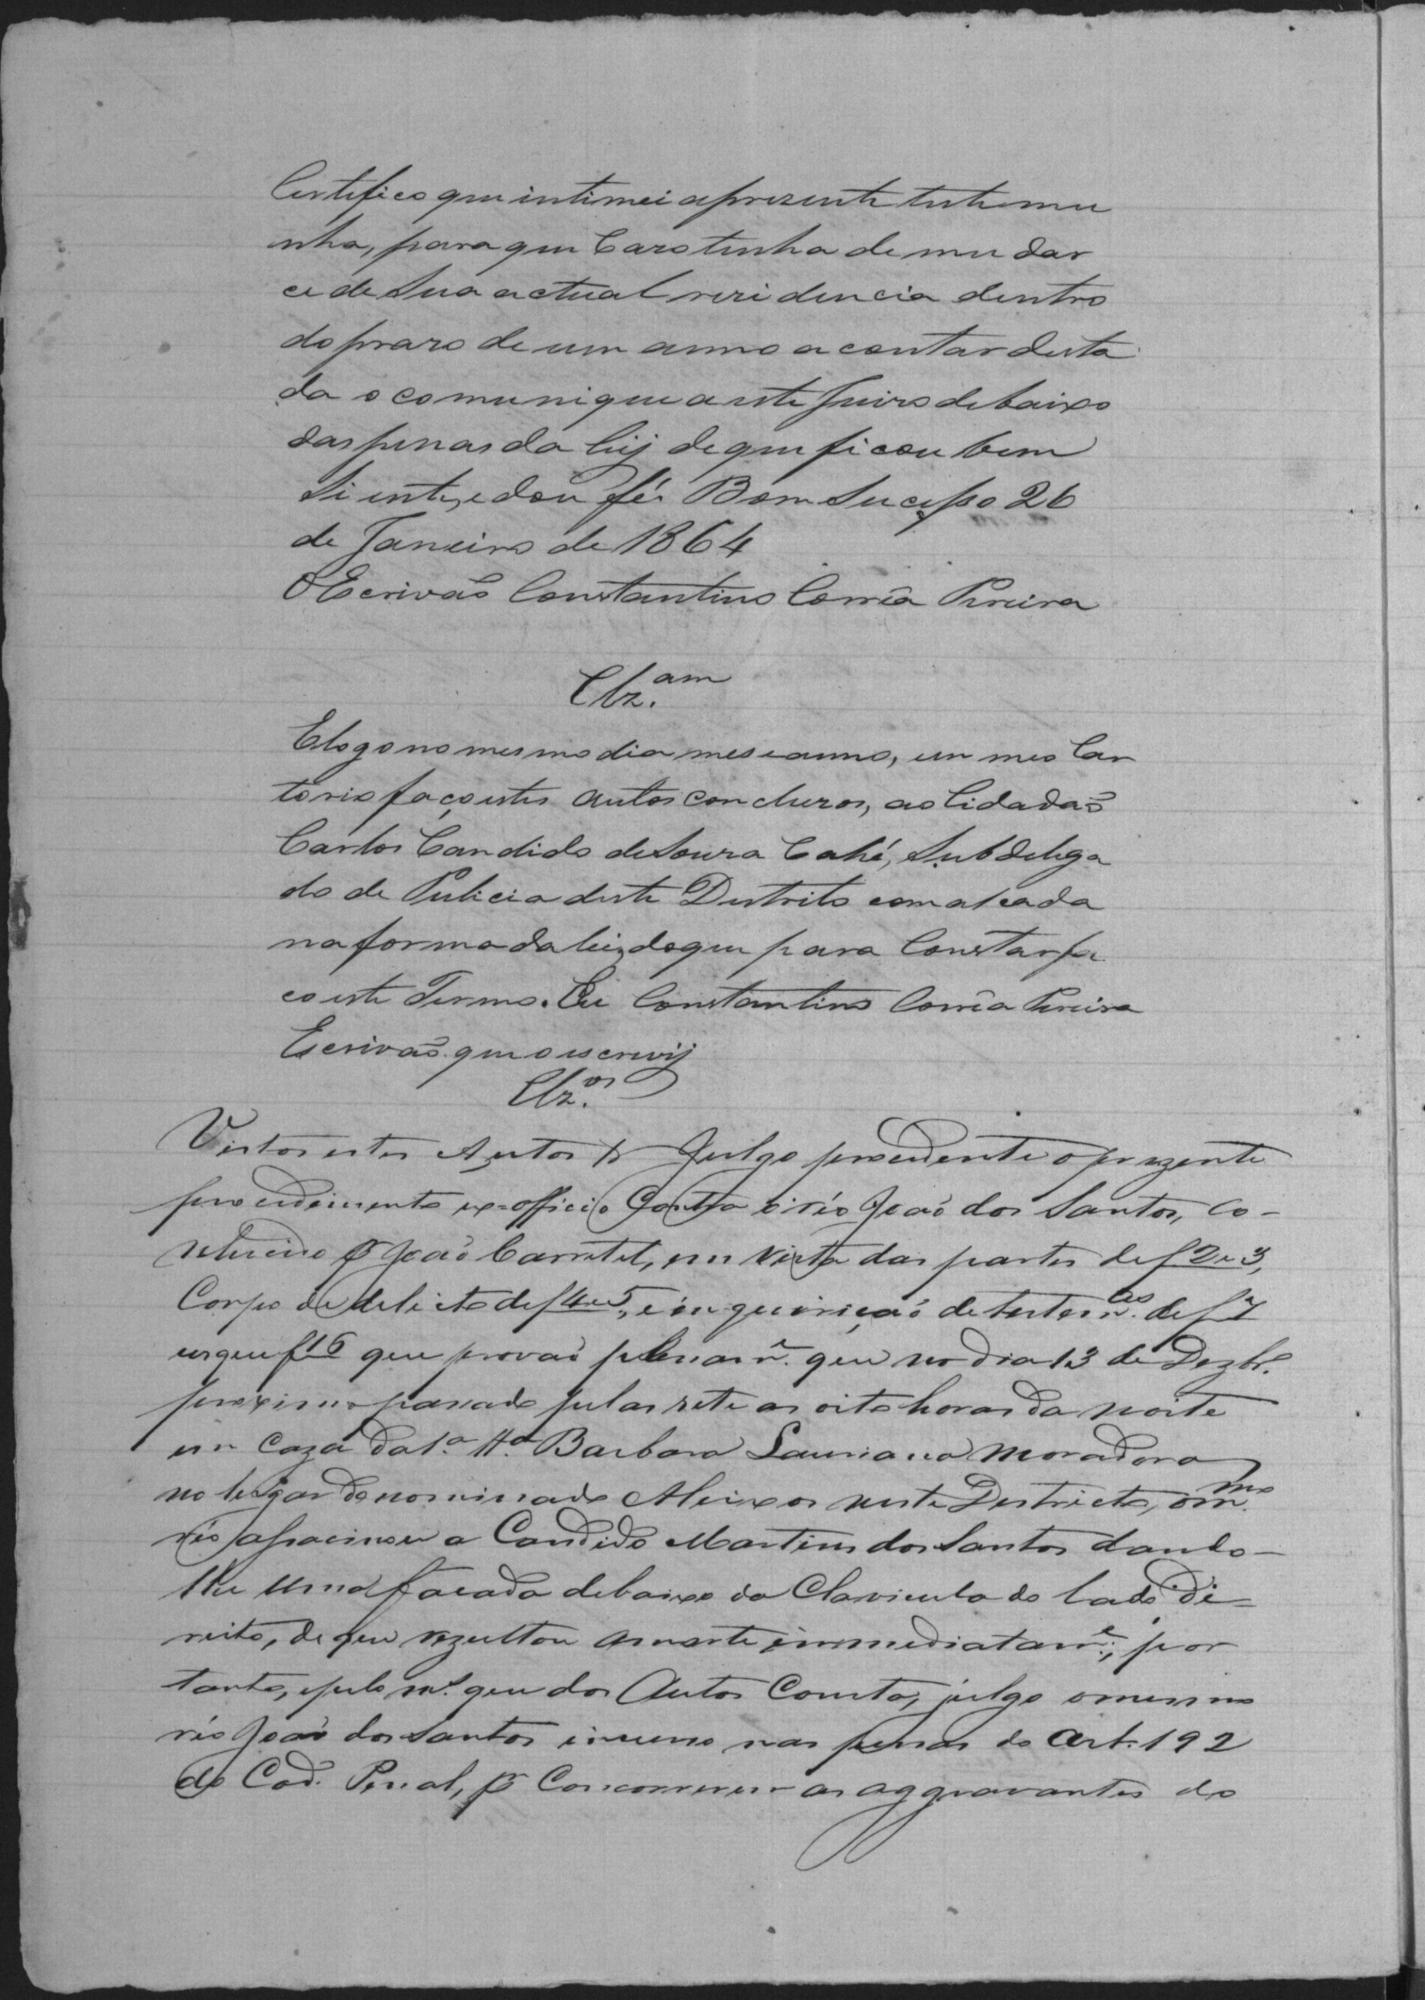 Certifico que intimei aprezente testemu
nha, para que Cazo tenha de mudar
ce de Sua actual rezidencia dentro
do prazo de um anno a contar desta
da o comunique a este Juizo debaixo
das penas da leij de que ficou bem
Siente, e dou fé. Bom Sucesso 26
de Janeiro de 1864
O Escrivaõ Constantino Corrêa Pereira
Clz.am
E logo no mesmo dia mes e anno, em meo Car
torio faço estes autos concluzos, ao Cidadaõ
Carlos Candido de Souza Cahé, Subdelega
do de Pulicia deste Destrito com alcada
na forma da lei, do que para Constar fa
co este Termo. Eu Constantino Corrêa Pereira
Escrivaõ que o escrevij
Clz.os
Vistos estes Autos & Julgo procedente o prezente
procedimento ex-officio Contra o réo Joaõ dos Santos, co-
nhecido por Joaõ Carretel, em vista das partes de f 2 e 3,
Corpo de delicto de f 4 e 5, e inquiriçaõ de testem.as de f 7
usque f 16 que provaõ plenam.e que no dia 13 de Dezbr.o
proximo passado pelas sete as oito horas da noite
em caza da I.a H.a Barbara Lauriana moradora
no lugar denominado Aleixos neste Destricto, o m.mo
réo assacinou a Candido Martins dos Santos dando-
lhe uma facada debaixo da Clavicula do lado di-
reito, de que rezultou a morte immediatam.e; por
tanto, e pelo m.s que dos Autos Consta, julgo o mesmo
réo Joaõ dos Santos incurso nas penas do Art. 192
do Cod. Penal, por Concorrerem as aggravantes do